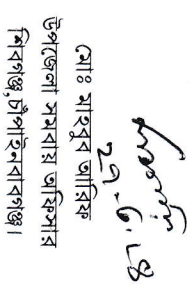 মোঃ মাহবুব আরিফ
উপজেলা সমবায় অফিসার
শিবগঞ্জ,চাঁপাইনবাবগঞ্জ।